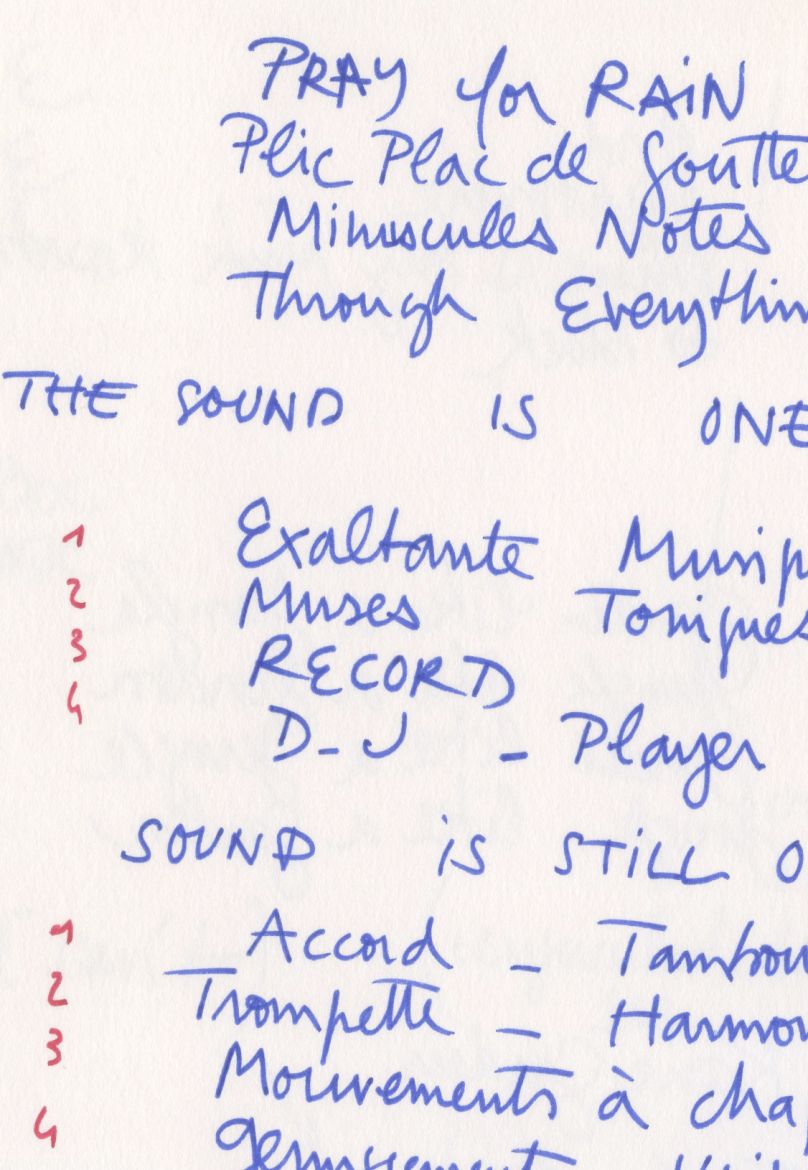 PRAY for RAiN
Plic Plac de goutte
Minuscules Notes
Through Everythin
THE SOUND IS ONE
1 Exaltante Musiq
2 Muses Toniques
3 RECORD
4 D-J - Player
SOUND iS STiLL O
1 Accord - Tambou
2 Trompette - Harmon
3 Mouvements à cha
4